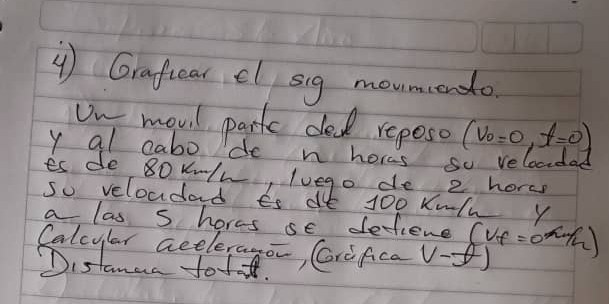 4) Graficar el sig movimiento.
Un movil parte del reposo (Vo=0, t=0)
y al cabo de n horas su velocidad
es de 80 Km/h, luego de 2 horas
su velocidad es de 100 Km/h y
a las 5 horas se detiene (Vf=0 km/h)
Calcular aceleración, (Gráfica V-t)
Distancia total.